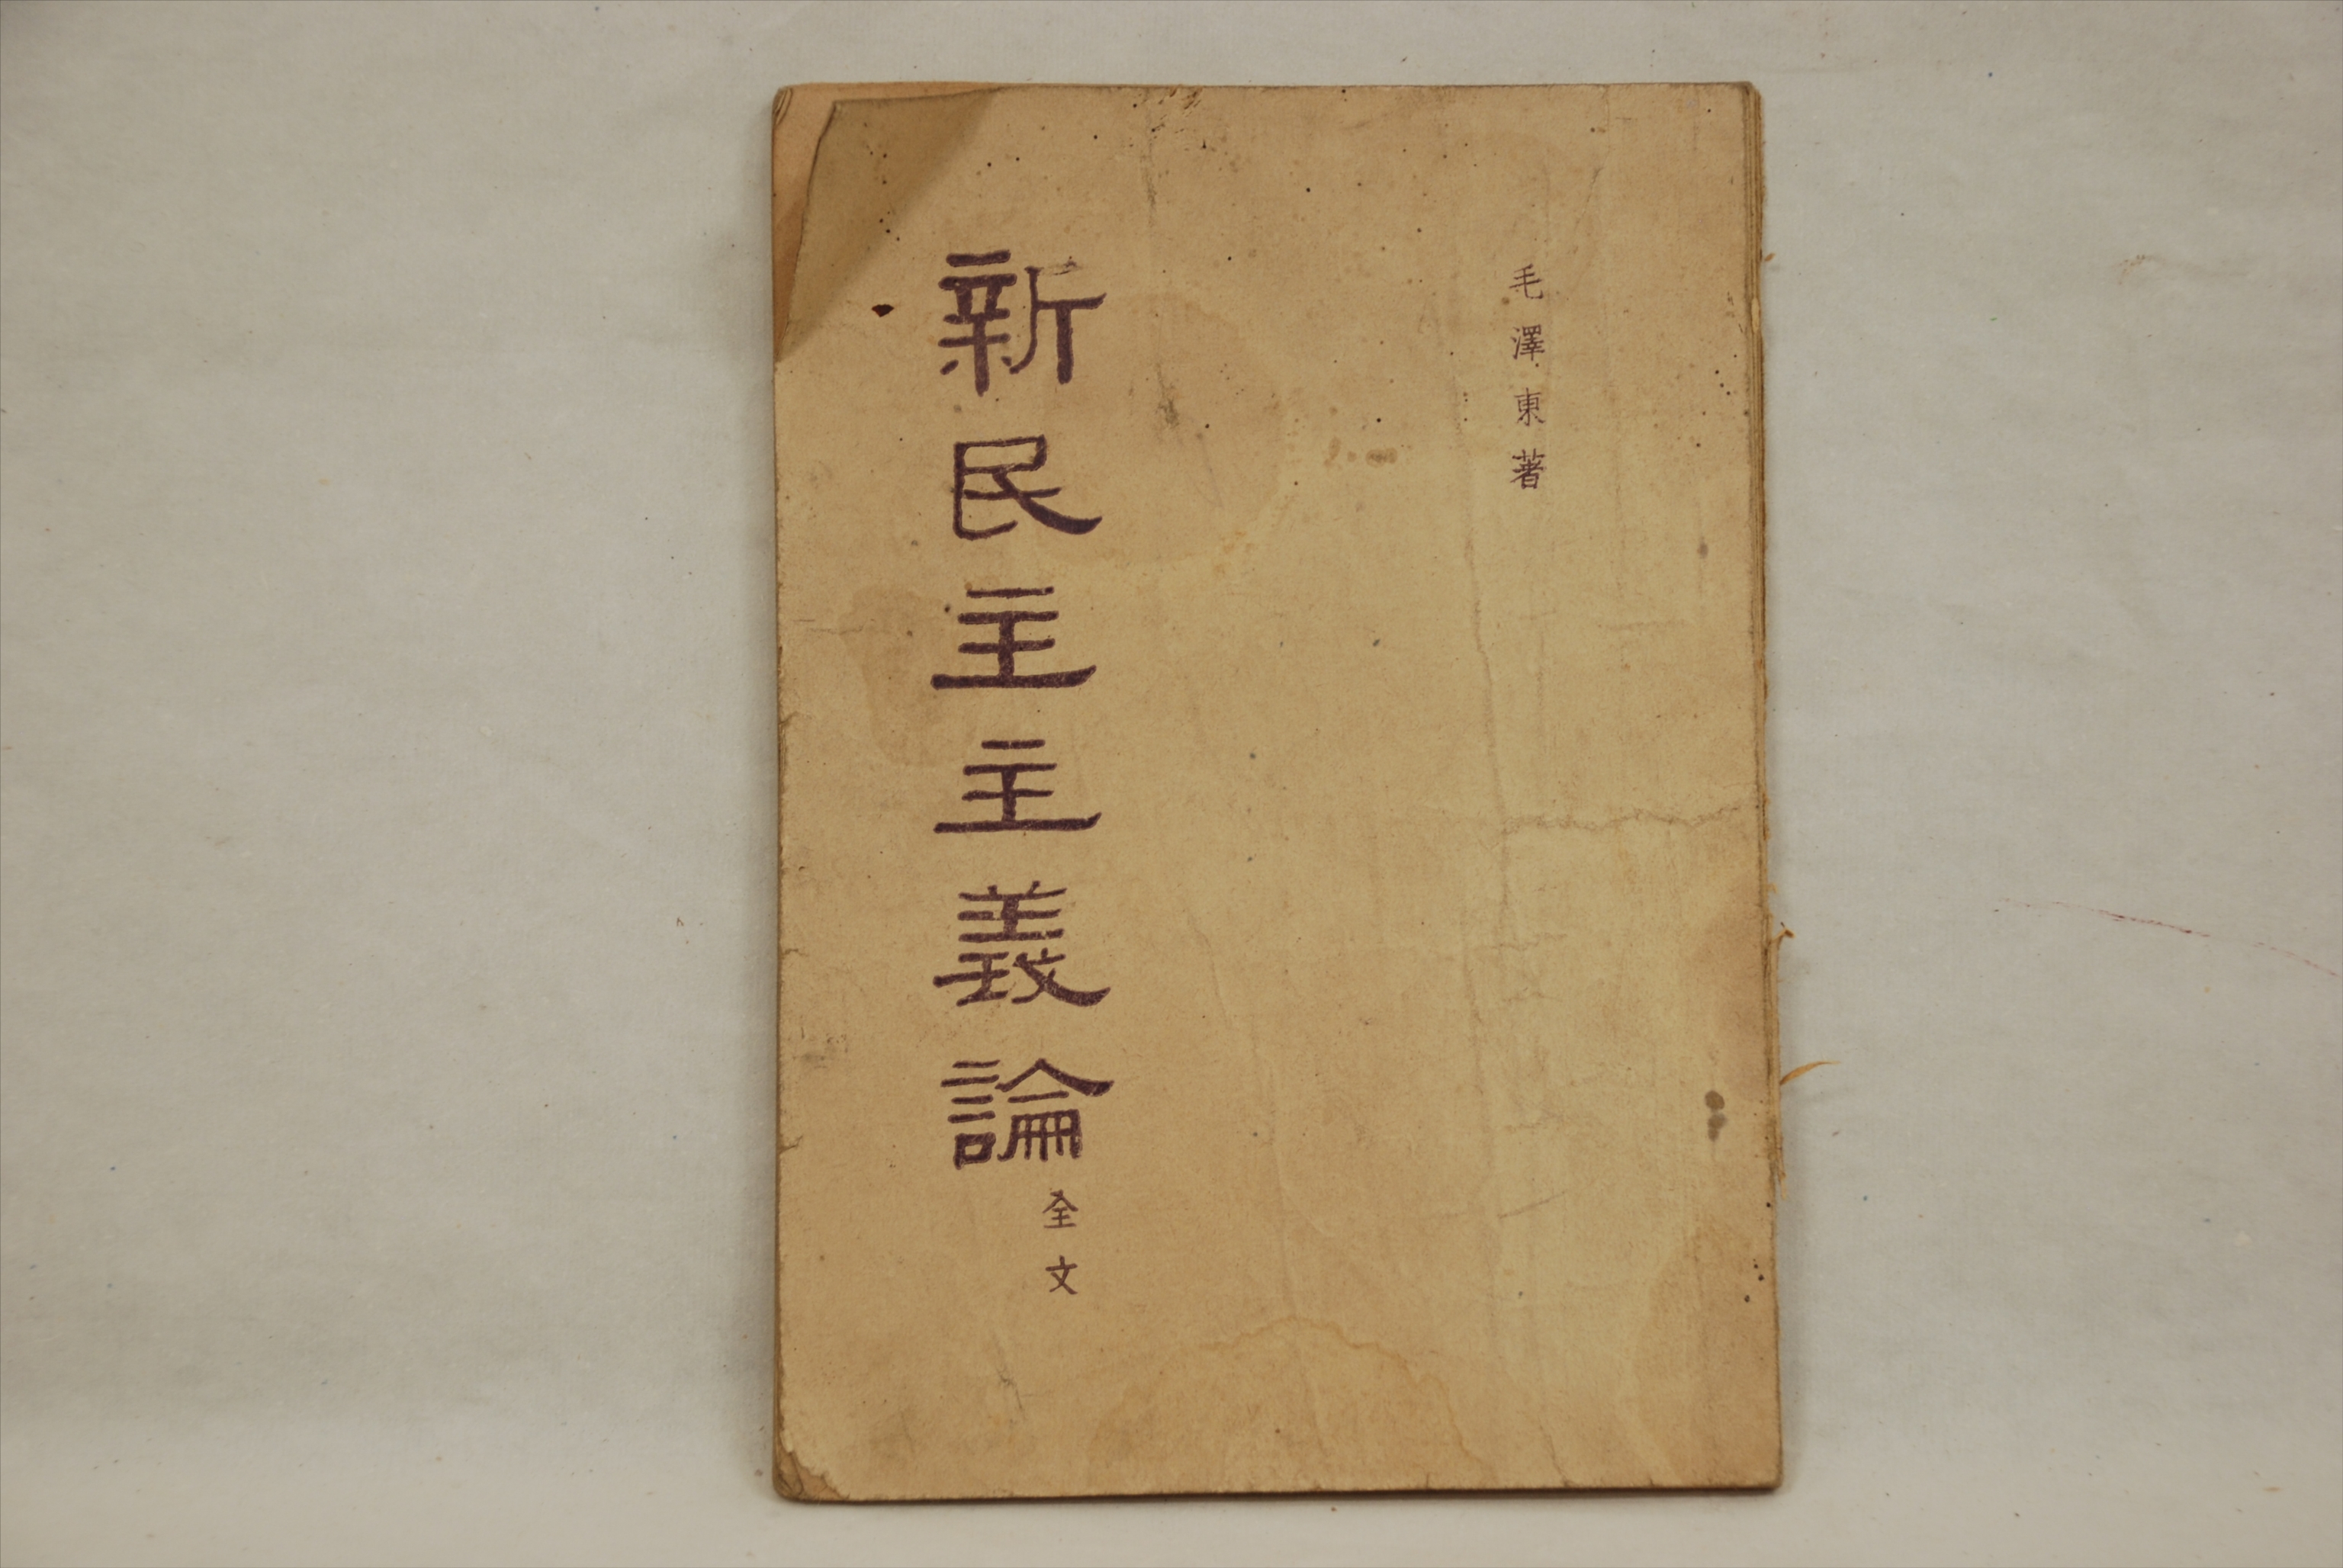 毛澤東著
新民主主義論
全文